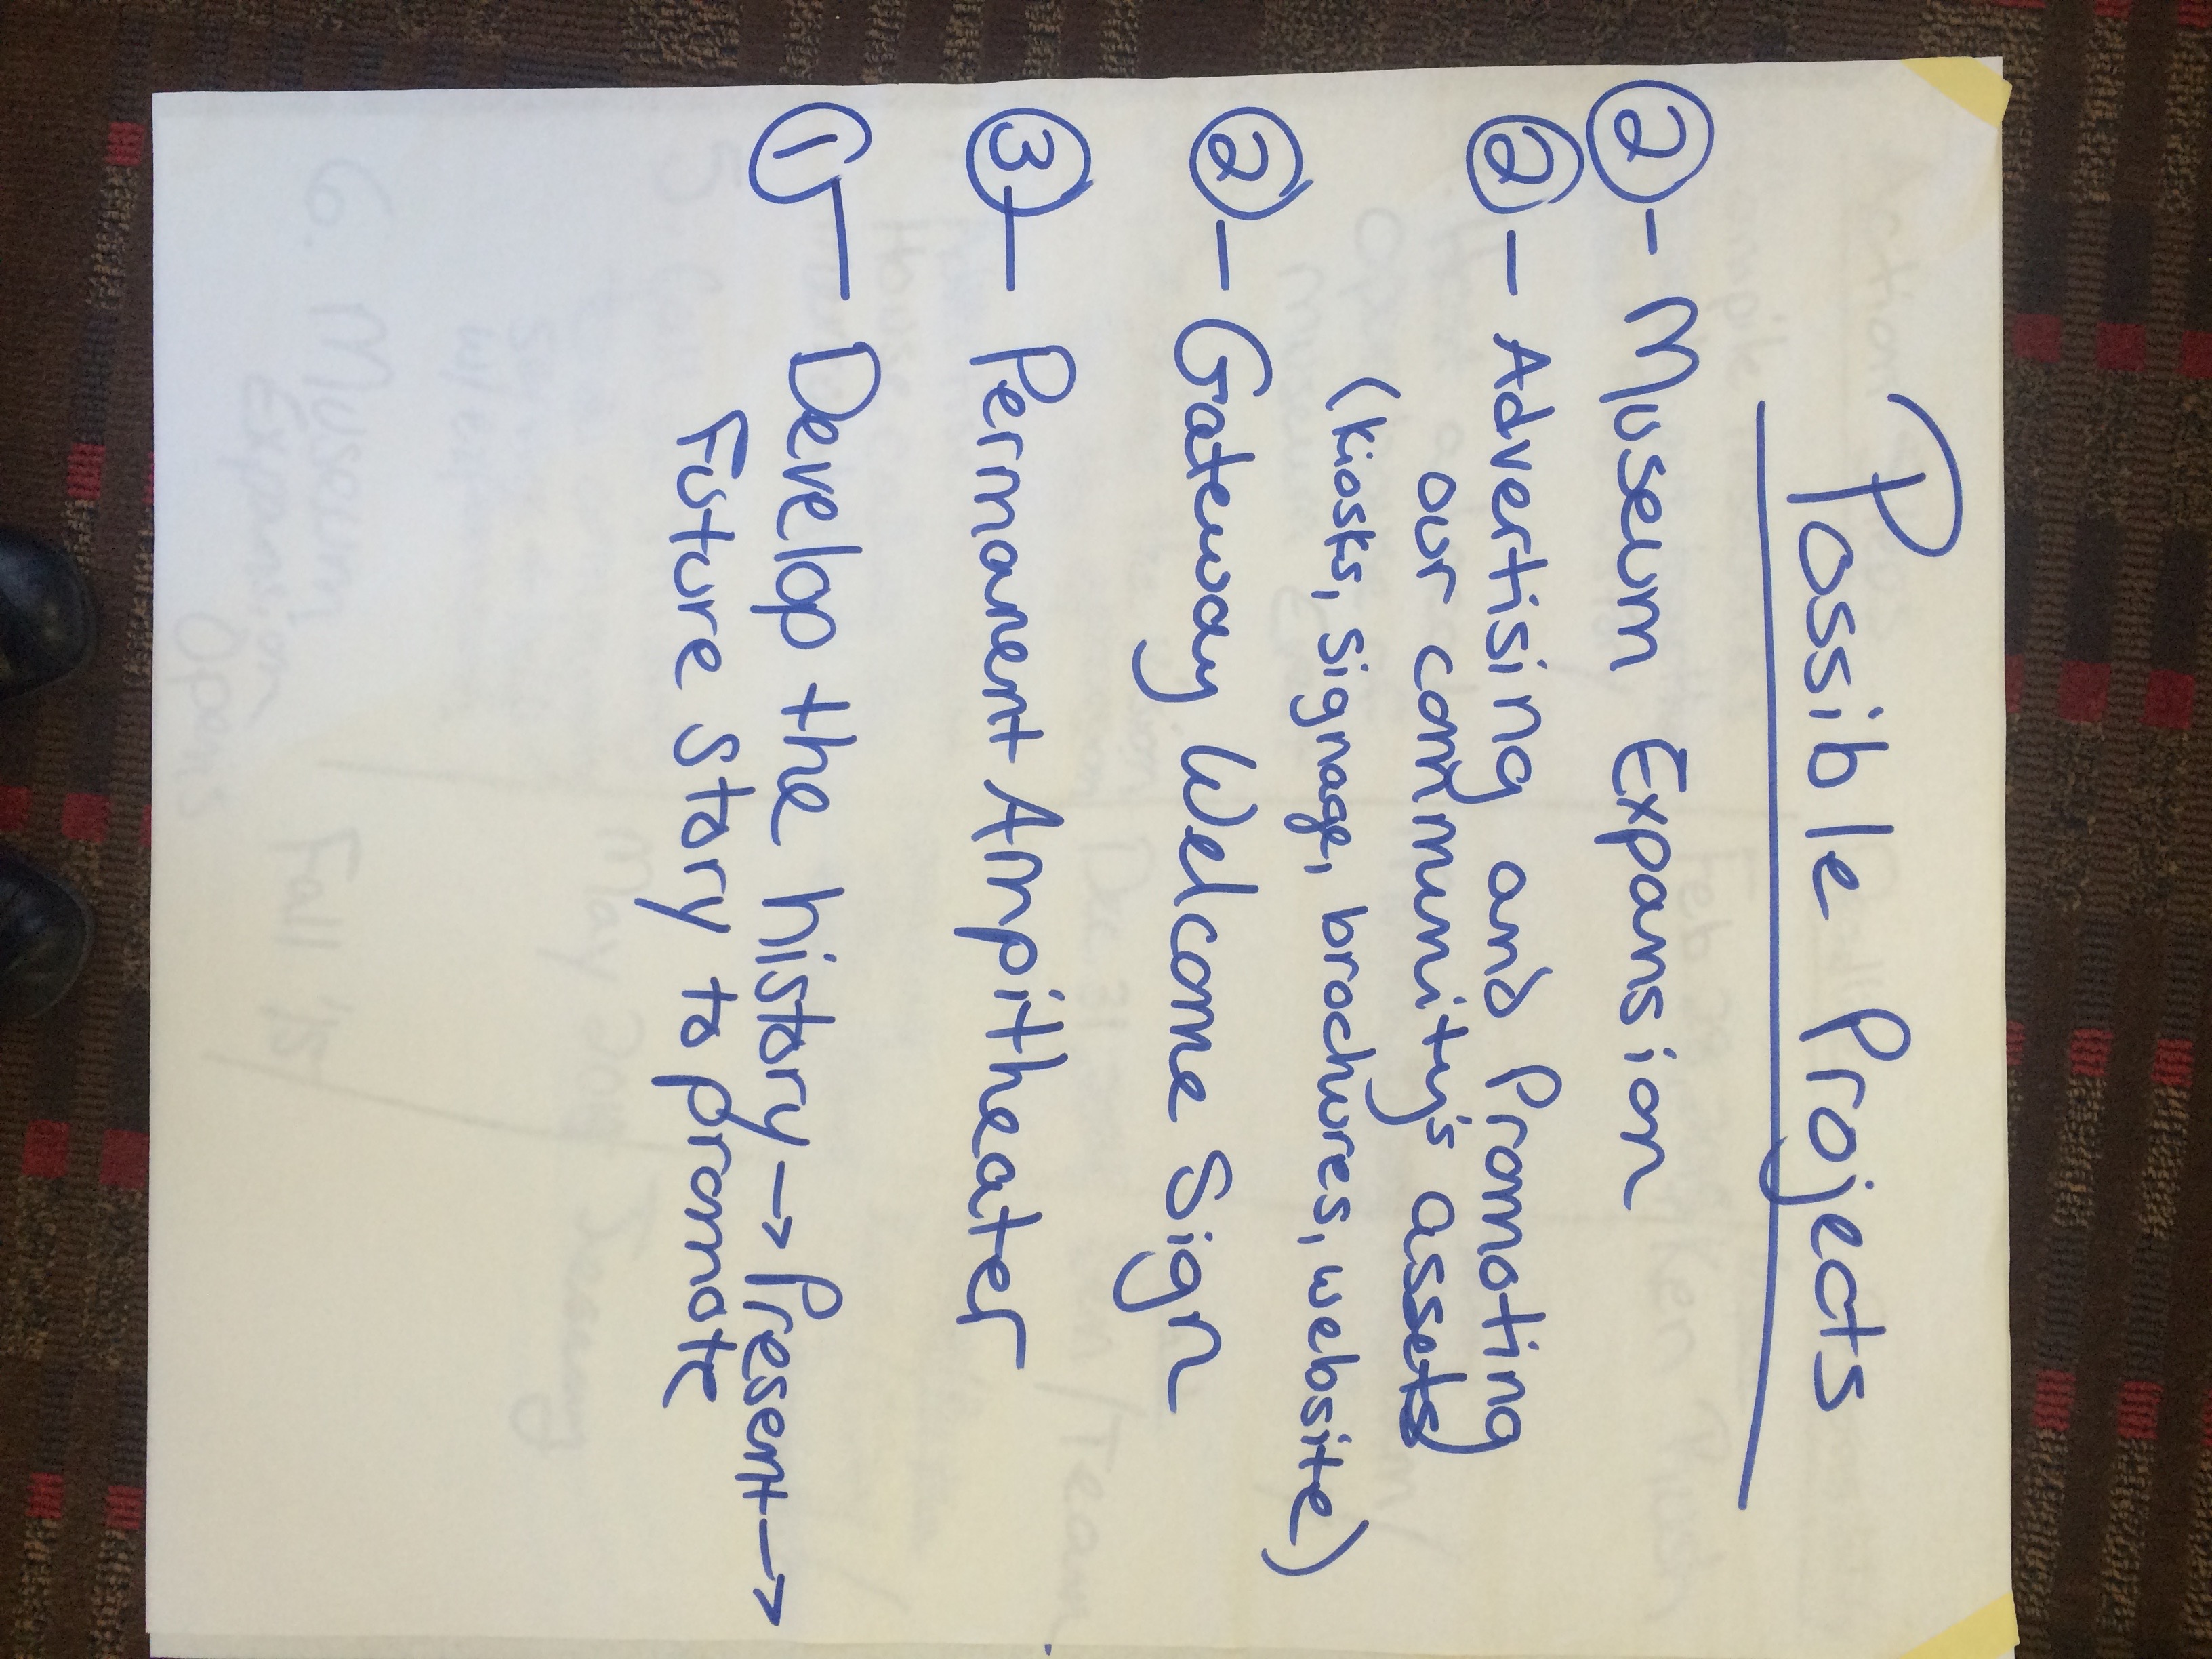 Possible Projects
② - Museum Expansion
② - Advertising and Promoting
our community's assets
(kiosks, signage, brochures, website)
② - Gateway Welcome Sign
③ - Permanent Ampitheater
① - Develop the history → Present →
Future Story to promote
6. Museum
Expansion
Opens
Fall '15